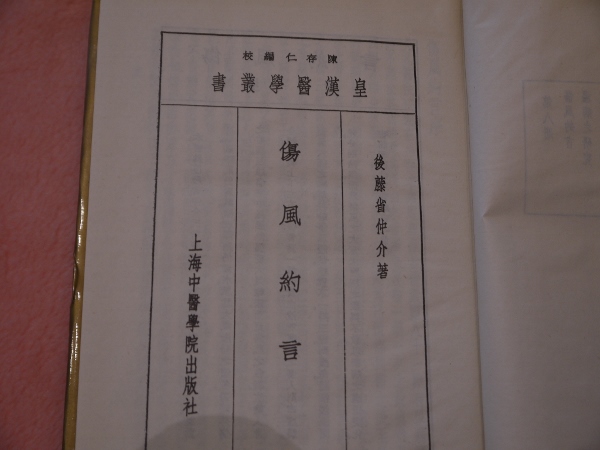 陳存仁編校
皇漢醫學叢書
後藤省仲介著
傷風約言
上海中醫學院出版社